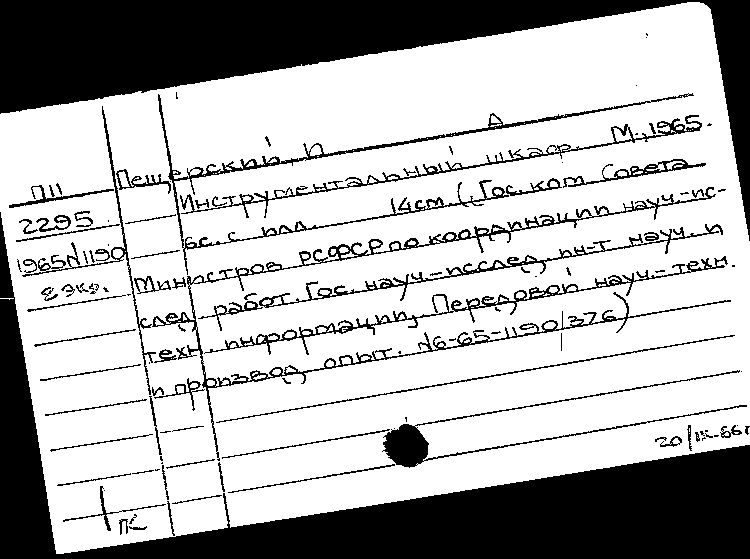 А
П11 Пещерский, И
Инструментальный шкаф. М., 1965.
2295 6с. с илл. 14см. (Гос. ком Совета
1965N1190 Министров РСФСР по координации науч.-ис-
2 экз. след. работ. Гос. науч.-исслед. ин-т науч. и
техн. информации, Передовой науч.-техн.
и производ. опыт. N6-65-1190/376)
20/IX-66г
ПК